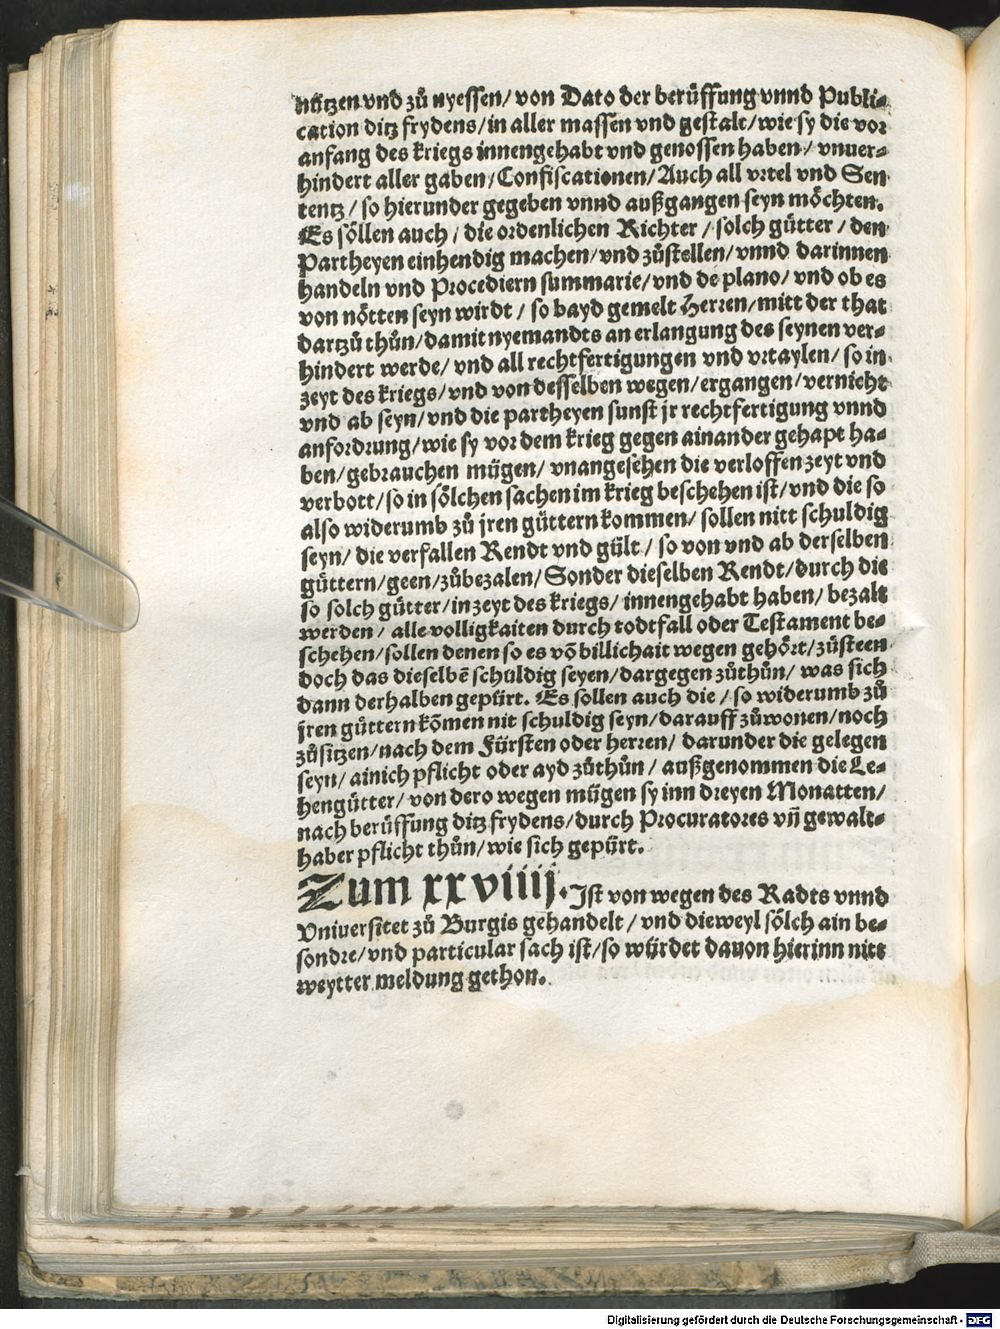 nützen vnd zů nyessen/ von Dato der berüffung vnnd Publi-
cation ditz frydens/ in aller massen vnd gestalt/ wie sy die vor
anfang des kriegs innengehabt vnd genossen haben/ vnuer-
hindert aller gaben/ Confiscationen/ Auch all vrtel vnd Sen-
tentz/ so hierunder gegeben vnnd außgangen seyn möchten.
Es söllen auch/ die ordenlichen Richter/ solch gütter/ den
Partheyen einhendig machen/ vnd zůstellen/ vnnd darinnen
handeln vnd Procediern summarie/ vnd de plano/ vnd ob es
von nötten seyn wirdt/ so bayd gemelt Herren/ mitt der that
dartzů thůn/ damit nyemandts an erlangung des seynen ver-
hindert werde/ vnd all rechtfertigungen vnd vrtaylen/ so in
zeyt des kriegs/ vnd von desselben wegen/ ergangen/ vernicht
vnd ab seyn/ vnd die partheyen sunst jr rechtfertigung vnnd
anfordrung/ wie sy vor dem krieg gegen ainander gehapt ha-
ben/ gebrauchen mügen/ vnangesehen die verloffen zeyt vnd
verbott/ so in sölchen sachen im krieg beschehen ist/ vnd die so
also widerumb zů jren güttern kommen/ sollen nitt schuldig
seyn/ die verfallen Rendt vnd gült/ so von vnd ab derselben
güttern/ geen/ zůbezalen/ Sonder dieselben Rendt/ durch die
so solch gütter/ in zeyt des kriegs/ innengehabt haben/ bezalt
werden/ alle volligkaiten durch todtfall oder Testament be-
schehen/ sollen denen so es võ billichait wegen gehört/ zůsteen
doch das dieselbẽ schuldig seyen/ dargegen zůthůn/ was sich
dann derhalben gepürt. Es sollen auch die/ so widerumb zů
jren güttern kõmen nit schuldig seyn/ darauff zůwonen/ noch
zůsitzen/ nach dem Fürsten oder herren/ darunder die gelegen
seyn/ ainich pflicht oder ayd zůthůn/ außgenommen die Le-
hengütter/ von dero wegen mügen sy inn dreyen Monatten/
nach berüffung ditz frydens/ durch Procuratores vñ gewalt-
haber pflicht thůn/ wie sich gepürt.
Zum xxviiij. Ist von wegen des Radts vnnd
Vniuersitet zů Burgis gehandelt/ vnd dieweyl sölch ain be-
sondre/ vnd particular sach ist/ so würdet dauon hierinn nitt
weytter meldung gethon.
Digitalisierung gefördert durch die Deutsche Forschungsgemeinschaft - DFG